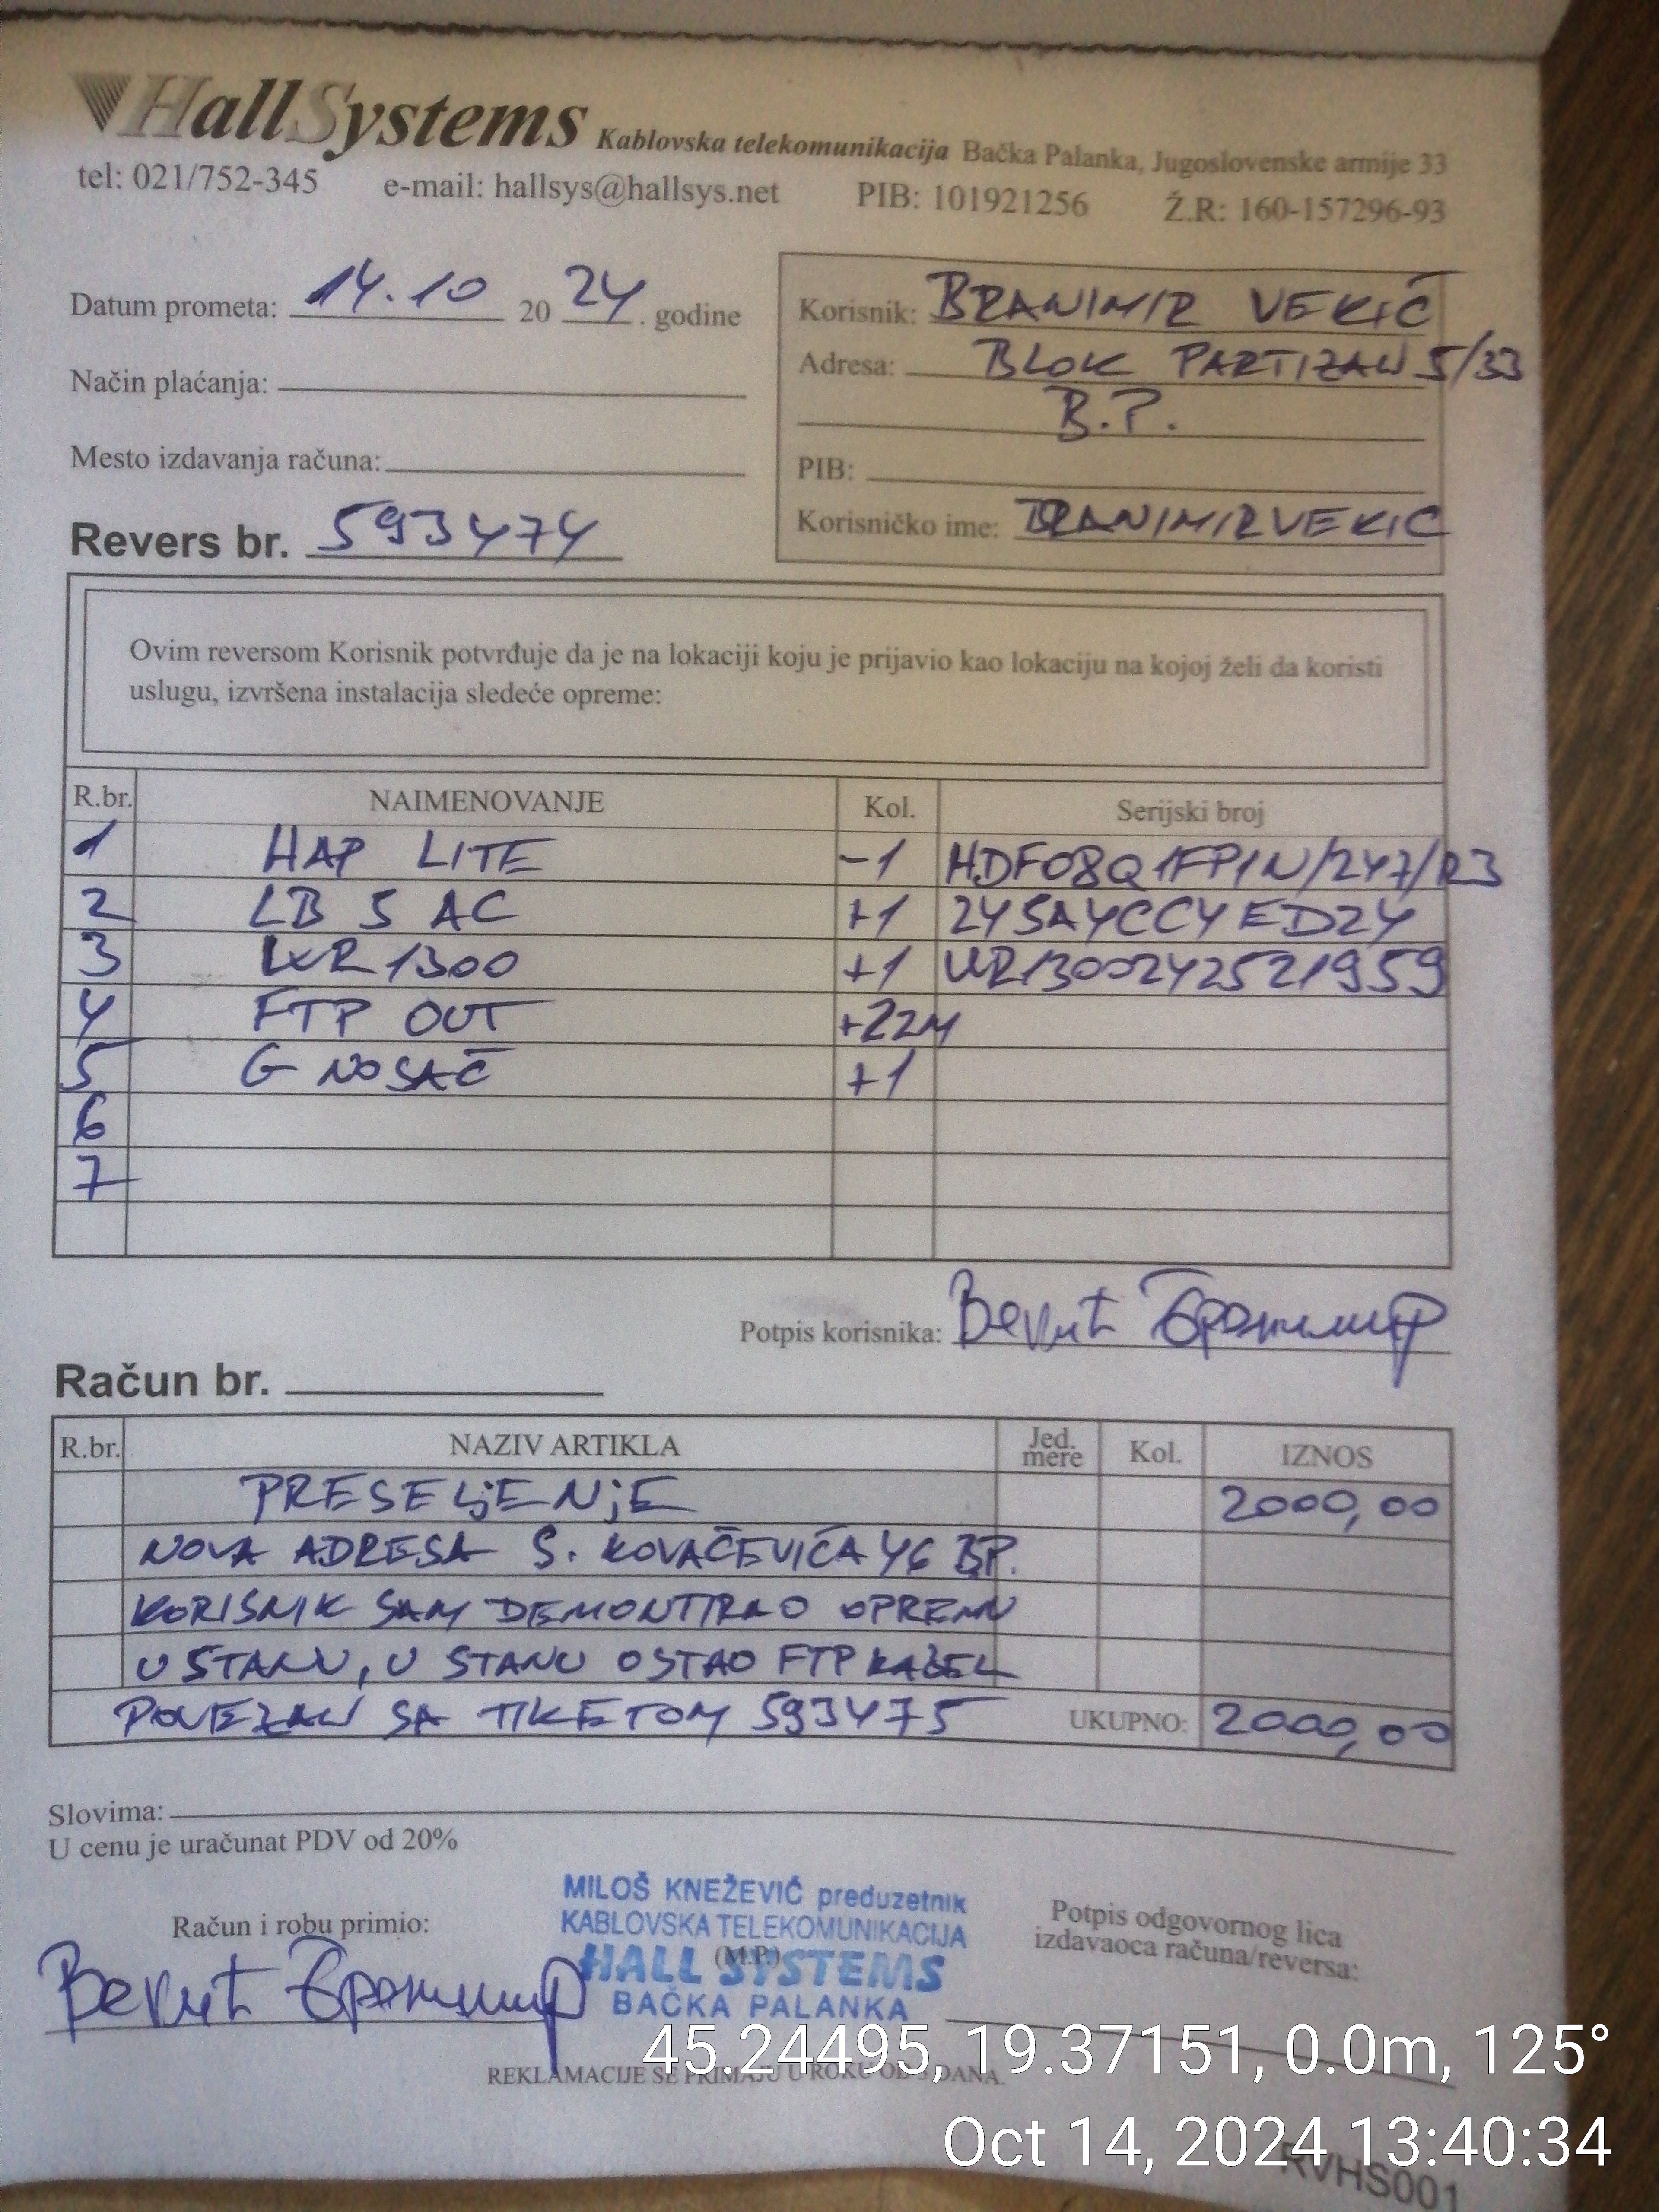 HallSystems Kablovska telekomunikacija Bačka Palanka, Jugoslovenske armije 33
tel: 021/752-345 e-mail: hallsys@hallsys.net PIB: 101921256 Ž.R: 160-157296-93
Datum prometa: 14.10 20 24. godine
Način plaćanja:
Mesto izdavanja računa:
Revers br. 593474
Korisnik: BRANIMIR VEKIĆ
Adresa: BLOK PARTIZAN 5/33
B.P.
PIB:
Korisničko ime: BRANIMIRVEKIC
Ovim reversom Korisnik potvrđuje da je na lokaciji koju je prijavio kao lokaciju na kojoj želi da koristi
uslugu, izvršena instalacija sledeće opreme:
R.br. NAIMENOVANJE Kol. Serijski broj
1 HAP LITE -1 HDF08Q1FP1N/247/R3
2 LB 5 AC +1 245A4CC4ED24
3 WR1300 +1 WR1300242521959
4 FTP OUT +22M
5 G NOSAČ +1
6
7
Potpis korisnika: Векић Бранимир
Račun br.
R.br. NAZIV ARTIKLA Jed. mere Kol. IZNOS
PRESELjENjE 2000,00
NOVA ADRESA S. KOVAČEVIĆA 46 BP.
KORISNIK SAM DEMONTIRAO OPREMU
U STANU, U STANU OSTAO FTP KABEL
POVEZAN SA TIKETOM 593475 UKUPNO: 2000,00
Slovima:
U cenu je uračunat PDV od 20%
Račun i robu primio:
Векић Бранимир
MILOŠ KNEŽEVIĆ preduzetnik
KABLOVSKA TELEKOMUNIKACIJA
(M.P.)
HALL SYSTEMS
BAČKA PALANKA
Potpis odgovornog lica
izdavaoca računa/reversa:
REKLAMACIJE SE PRIMAJU U ROKU OD DANA.
45.24495, 19.37151, 0.0m, 125°
Oct 14, 2024 13:40:34
RVHS001